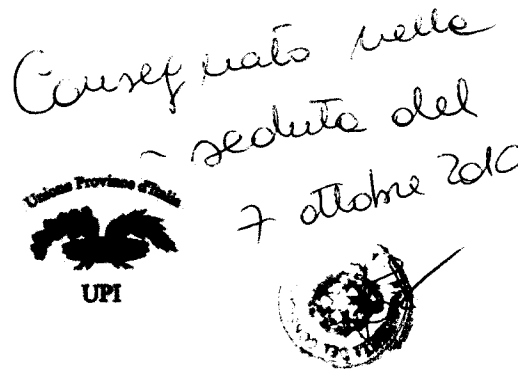 Consegnato nella
- seduta del
7 ottobre 2010
Unione Province d'Italia
UPI